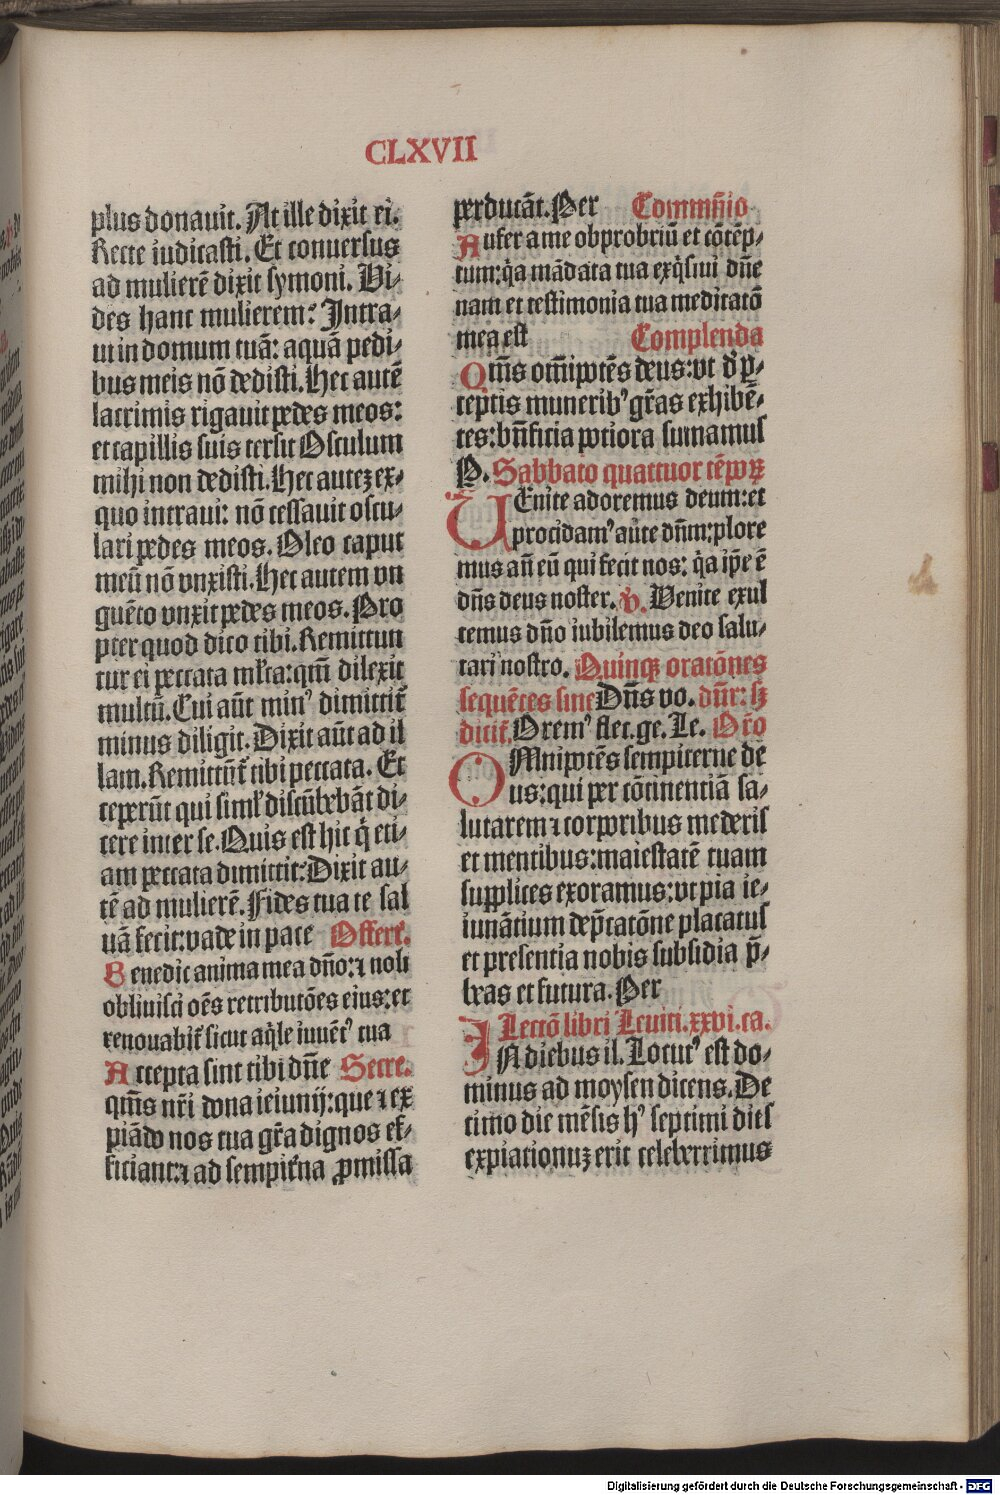 CLXVII
plus donauit. At ille dixit ei.
Recte iudicasti. Et conuersus
ad mulierē dixit symoni. Vi-
des hanc mulierem? Intra-
ui in domum tuā: aquā pedi-
bus meis nō dedisti. Hec autē
lacrimis rigauit pedes meos:
et capillis suis tersit Osculum
mihi non dedisti. Hec autez ex-
quo intraui: nō cessauit oscu-
lari pedes meos. Oleo caput
meū nō vnxisti. Hec autem vn
guēto vnxit pedes meos. Pro
pter quod dico tibi. Remittun
tur ei peccata mĺta: qm̄ dilexit
multū. Cui aūt minꝰ dimittit̄
minus diligit. Dixit aūt ad il
lam. Remittūt̄ tibi peccata. Et
ceperūt qui simĺ discūbebāt di-
cere inter se. Quis est hic q̇ eti-
am peccata dimittit? Dixit au-
tē ad mulierē. Fides tua te sal
uā fecit: vade in pace Offert̄.
Benedic anima mea dn̄o: ⁊ noli
obliuisci oēs retributōes eius: et
renouabit̄ sicut aq̇le iuuētꝰ tua
Accepta sint tibi dn̄e Secre.
qm̄s nr̄i dona ieiunij: que ⁊ ex
piādo nos tua gr̄a dignos ef-
ficiant: ⁊ ad sempit̄na ꝓmissa
perducāt. Per Commn̄io
Aufer a me obprobriū et cōtēp-
tum: q̇a mādata tua exq̇siui dn̄e
nam et testimonia tua meditatō
mea est Complenda
Qm̄s om̄ipotēs deus: vt d̓ p̱-
ceptis muneribꝰ gr̄as exhibē-
tes: bn̄ficia potiora sumamus
P. Sabbato quattuor tēpoꝝ
VEnite adoremus deum: et
procidamꝰ aūte dn̄m: plore
mus an̄ eū qui fecit nos: q̇a ip̄e ē
dn̄s deus noster. ℣. Venite exul
temus dn̄o iubilemus deo salu-
tari nostro. Quinqꝫ oratōnes
sequētes sine Dn̄s vo. dn̄r: sꝫ
dicit̄. Oremꝰ flec. ge. Le. Or̄o
OMnipotēs sempiterne de
us: qui per cōtinentiā sa-
lutarem ⁊ corporibus mederis
et mentibus: maiestatē tuam
supplices exoramus: vt pia ie-
iunātium dep̄catōne placatus
et presentia nobis subsidia p̄-
beas et futura. Per
Lectō libri Leuiti. xxvi. ca.
IN diebus il. Locutꝰ est do-
minus ad moysen dicens. De
cimo die mēsis hꝰ septimi dies
expiationuꝫ erit celeberrimus
Digitalisierung gefördert durch die Deutsche Forschungsgemeinschaft - DFG